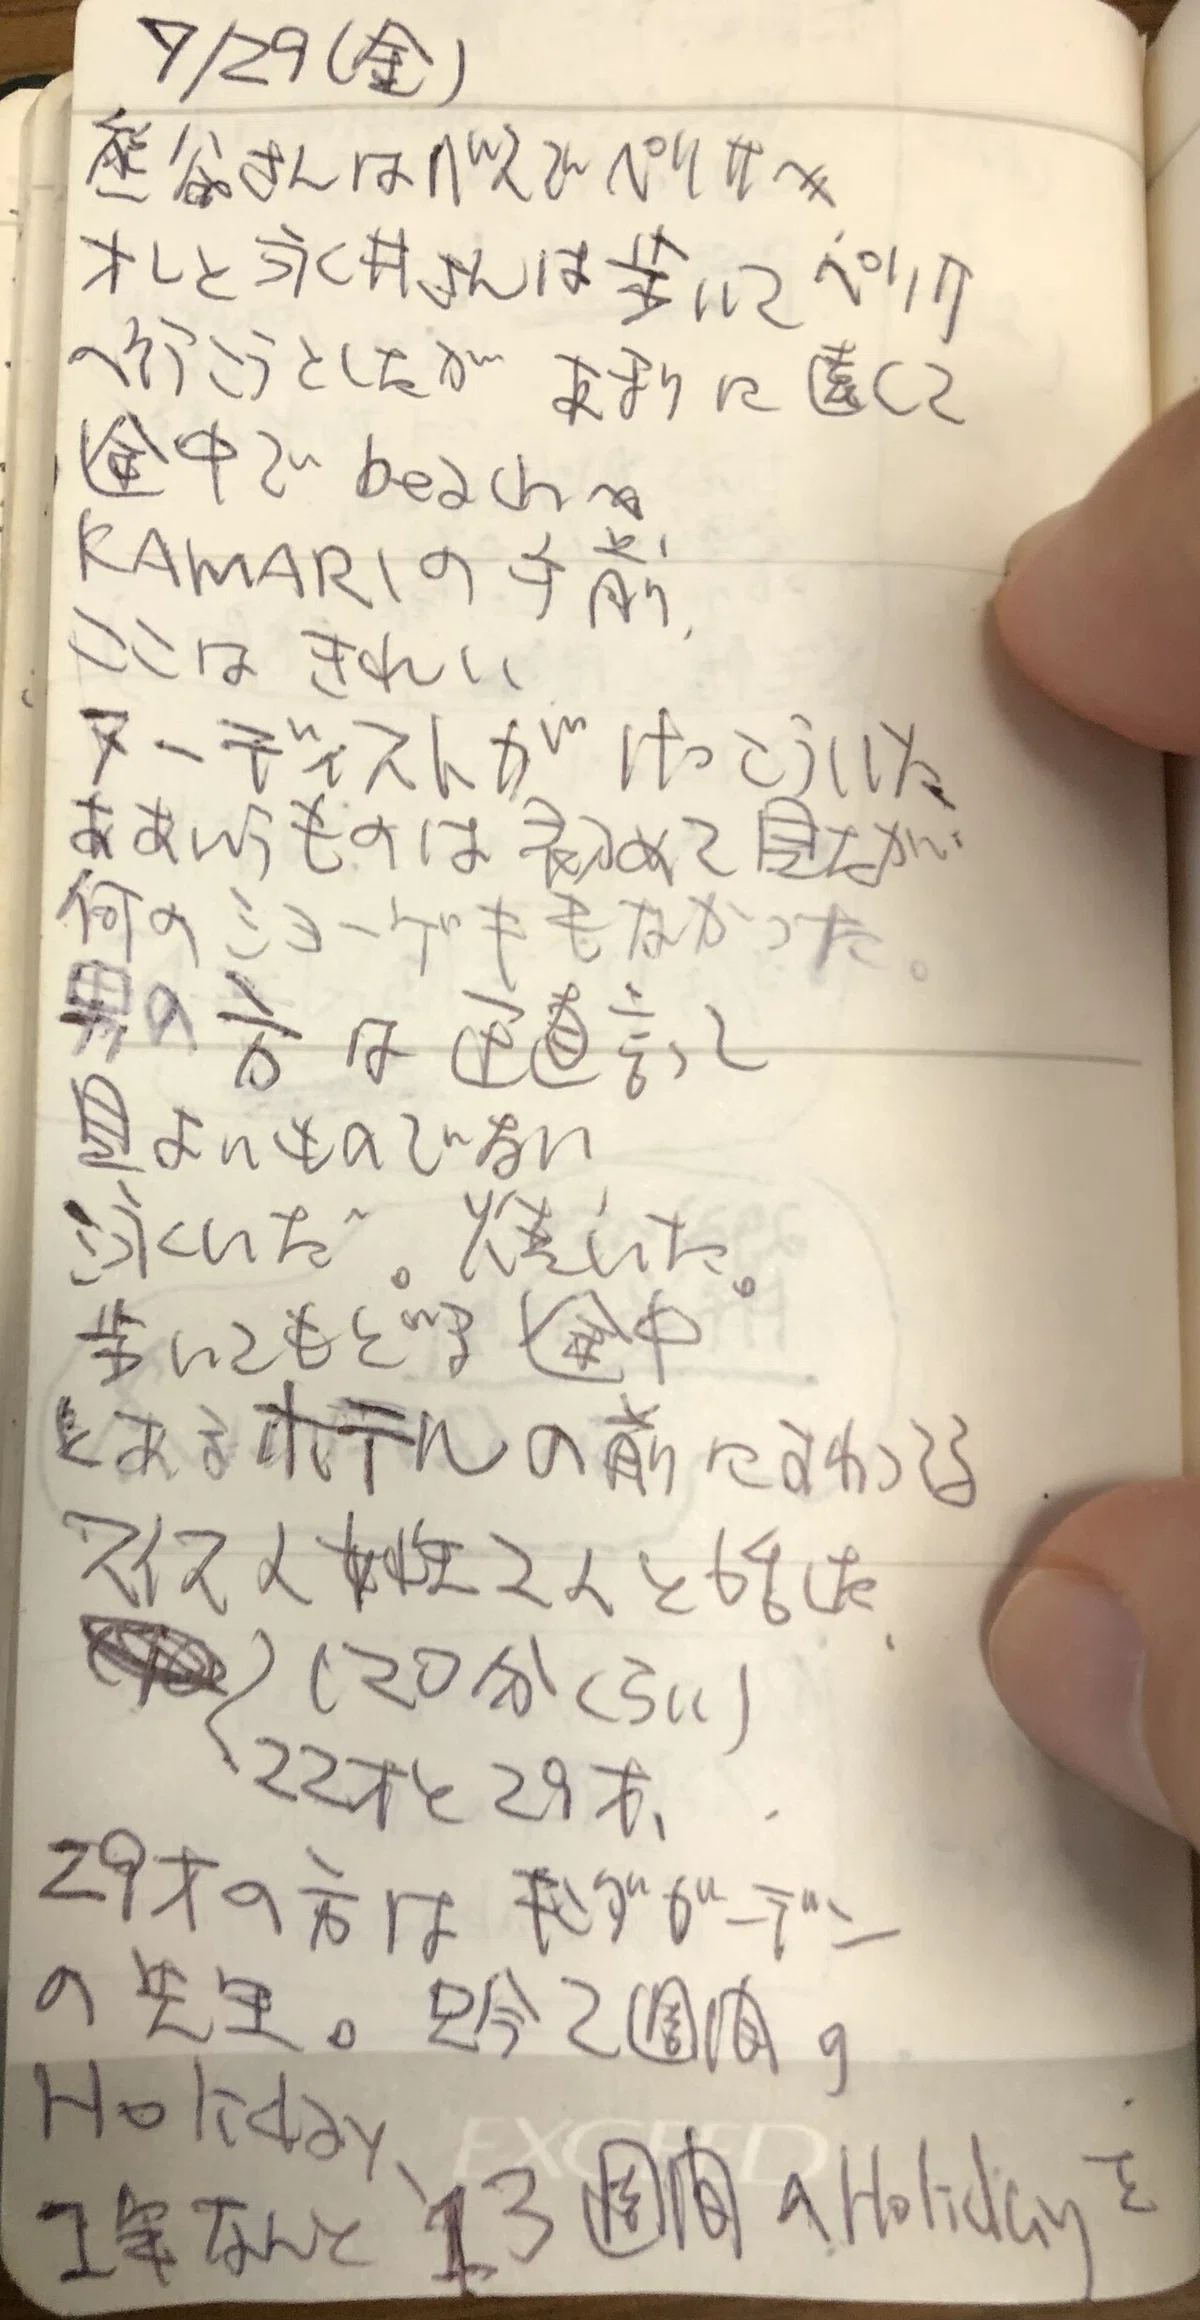 7/29(金)
熊谷さんはバスでペリサへ
オレと永井さんは歩いてペリサ
へ行こうとしたが あまりに遠くて
途中で beachへ
KAMARIの手前、
ここは きれい
ヌーディストが けっこういた
ああいうものは初めて見たが
何のショーゲキもなかった。
男の方は正直言って
見よいものでない
泳いだ。焼いた。
歩いてもどる途中
とあるホテルの前にすわってる
スイス人女性2人と話した
(20分くらい)
22才と29才、
29才の方は ガーデン
の先生。只今2週間の
Holiday、
1年なんと13週間のHolidayを
EXCEED